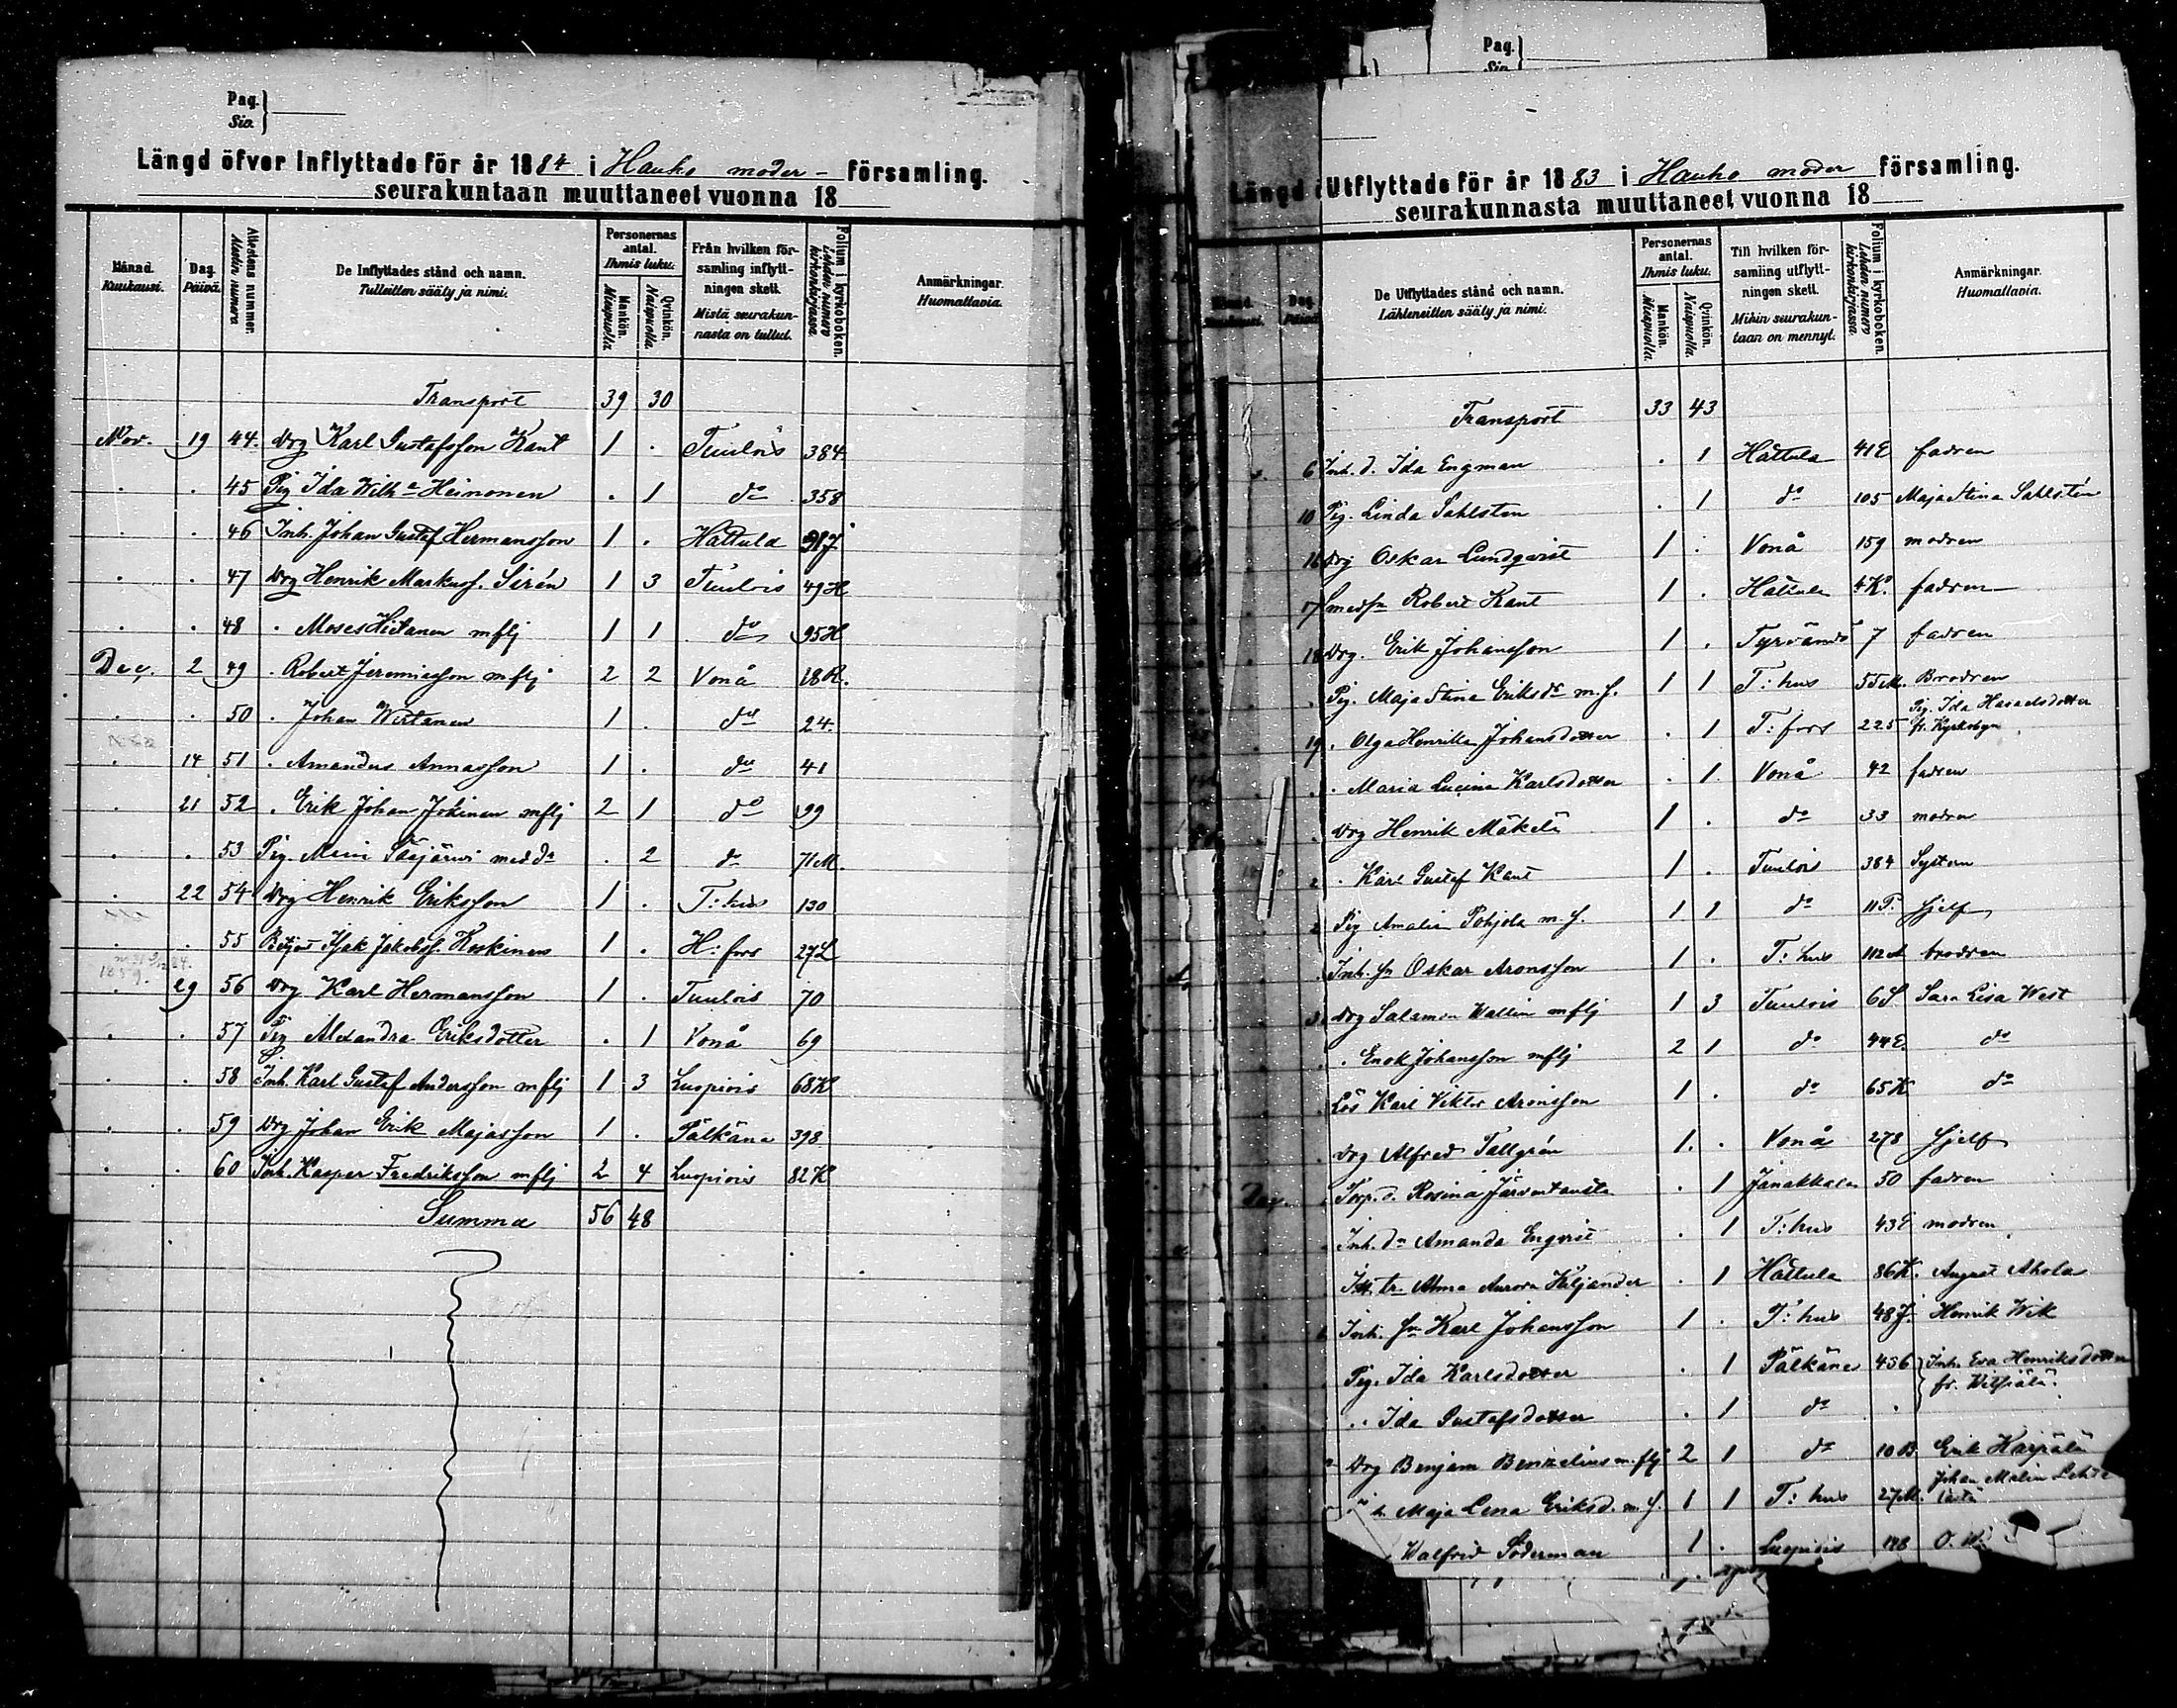 Pag.
Siv.
Längd öfver Inflyttade för år 1884 i Hauho moder- församling.
seurakuntaan muuttaneet vuonna 18
Månad. Kuukausi. Dag. Päivä. Attestens nummer. Attestin numero De Inflyttades stånd och namn. Tulleitten sääty ja nimi. Personernas antal. Ihmis luku. Mankön. Miespuolia. Qvinkön. Naispuolia. Från hvilken församling inflyttningen skett. Mistä seurakunnasta on tullut. Folium i kyrkoboken. Lehden numero kirkonkirjassa. Anmärkningar. Huomattavia.
Transport 39 30
Nov. 19 44. Drg Karl Gustafsson Kant 1 . Tuulois 384
. . 45 Pig Ida Wilh:a Heinonen . 1 do 358
. . 46 Inh. Johan Gustaf Hermansson 1 . Hattula 91J
. . 47 Drg Henrik Markuss. Sirén 1 3 Tuulois 49H
. . 48 . Moses Hietanen mflj 1 1 do 95H
Dec. 2 49 . Robert Jeremiasson mflj 2 2 Vonå 18R.
. . 50 . Johan Wirtanen 1 . do 24.
. 14 51 . Amandus Annasson 1 . do 41
. 21 52 . Erik Johan Jokinen mflj 2 1 do 99
. . 53 Pig. Mari med dr . 2 do 71M.
. 22 54 Drg Henrik Eriksson 1 . T:hus 130
. . 55 Isak Jakobss. Koskinen 1 . H:fors 27L
. 29 56 Drg Karl Hermansson 1 . Tuulois 70
. . 57 Pig Alexandra Eriksdotter . 1 Vonå 69
. . 58 Inh. Karl Gustaf Andersson mflj 1 3 Luopiois 68K
. . 59 Drg Johan Erik Majasson 1 . Pälkäne 398
. . 60 Inh. Kasper Fredriksson mflj 2 4 Luopiois 82K
Summa 56 48
Pag.
Siv.
Längd Utflyttade för år 1883 i Hauho moder församling.
seurakunnasta muuttaneet vuonna 18
Månad. Dag. Päivä. De Utflyttades stånd och namn. Lähteneitten sääty ja nimi. Personernas antal. Ihmis luku. Mankön. Miespuolia. Qvinkön. Naispuolia. Till hvilken församling utflyttningen skett. Mihin seurakuntaan on mennyt. Folium i kyrkoboken. Lehden numero kirkonkirjassa. Anmärkningar. Huomattavia.
Transport 33 43
6 Inh. d. Ida Engman . 1 Hattula 41E fadren
10 Pig. Linda Sahlsten . 1 do 105 Maja Stina Sahlstén
16 Drg Oskar Lundqvist 1 . Vonå 159 modren
17 Smedsn Robert Kant 1 . Hattula 4K. fadren
18 Drg. Erik Johansson 1 . Tyrvändö 7 fadren
Pig. Maja Stina Eriksdr m. s. 1 1 T:hus 55M. Brodren
19 . Olga Henrika Johansdotter . 1 T:fors 225 Pig. Ida fr. Kyrkobyn
. Maria Lucina Karlsdotter . 1 Vonå 42 fadren
Drg Henrik Mäkelä 1 . do 33 modren
. Karl Gustaf Kant 1 . Tuulois 384 Systern
Pig Amalia Pohjola m. s. 1 1 do 11P. sjelf
Inh. sn Oskar Aronsson 1 . T:hus 112A brodren
Drg Salamon Wallin mflj 1 3 Tuulois 6S. Sara Lisa West
. Enok Johansson mflj 2 1 do 44E. do
Lös Karl Viktor Aronsson 1 . do 65K do
Drg Alfred Tallgrén 1. . Vonå 278 sjelf
Torp. d. Rosina Järventausta . 1 Janakkala 50 fadren
Inh. dr Amanda Engqvist . 1 T:hus 43E modren
Alma Aurora Kiljander . 1 Hattula 86K. August Ahola
Inh. sn Karl Johansson 1 . T:hus 48J. Henrik Wik
Pig. Ida Karlsdotter . 1 Pälkäne 456 Inh. Eva Henriksdotter
.. Ida Gustafsdotter . 1 do .
Drg Benjam Benzelius m. flj 2 1 do 10B. Erik
Maja Lena Eriksd. m. s. 1 1 T:hus 27M. Johan Malin
Walfrid Söderman 1 . Luopiois 188 O.